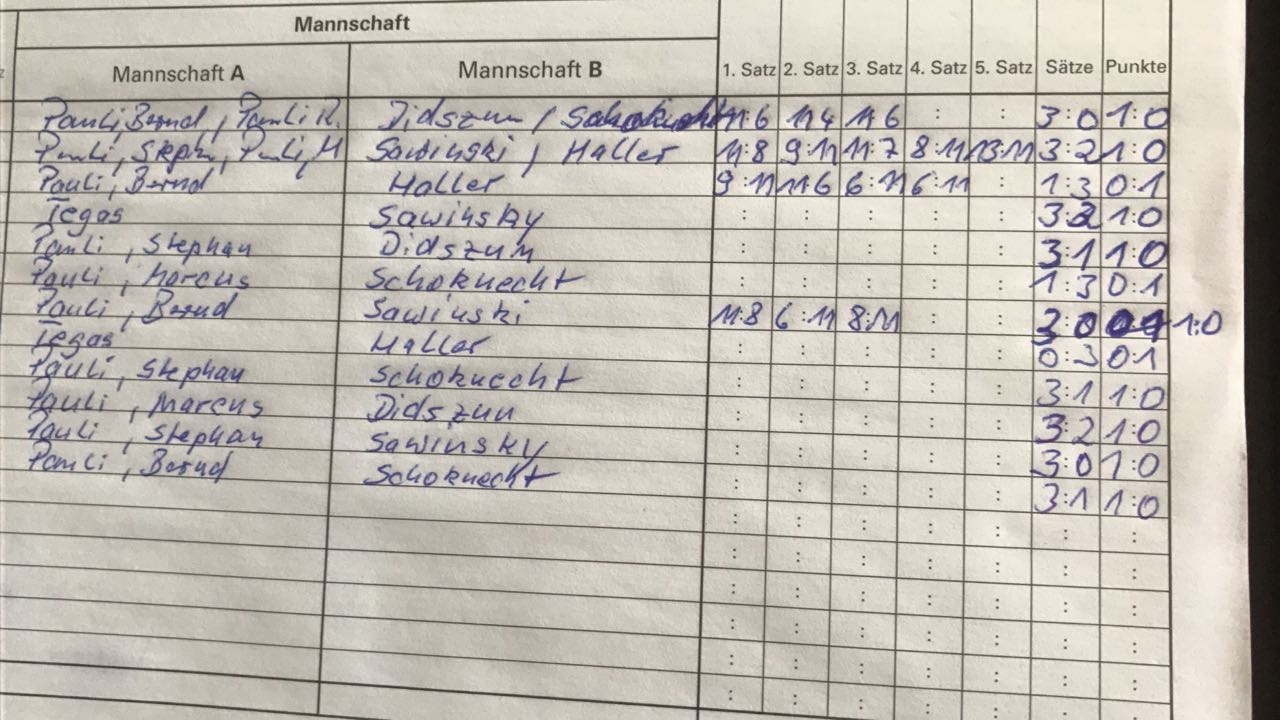 Mannschaft
Mannschaft A Mannschaft B 1. Satz 2. Satz 3. Satz 4. Satz 5. Satz Sätze Punkte
Pauli, Bernd, Pauli R. Didszun / Schoknecht 11:6 11:4 11:6 : : 3:0 1:0
Pauli, Steph, Pauli, M Sawinski / Haller 11:8 9:11 11:7 8:11 13:11 3:2 1:0
Pauli, Bernd Haller 9:11 11:6 6:11 6:11 : 1:3 0:1
Tegas Sawinsky : : : : : 3:2 1:0
Pauli, Stephan Didszun : : : : : 3:1 1:0
Pauli, Marcus Schoknecht : : : : : 1:3 0:1
Pauli, Bernd Sawinski 11:8 6:11 8:11 : : 3:0 1:0
Tegas Haller : : : : : 0:3 0:1
Pauli, Stephan Schoknecht : : : : : 3:1 1:0
Pauli, Marcus Didszun : : : : : 3:2 1:0
Pauli, Stephan Sawinsky : : : : : 3:0 1:0
Pauli, Bernd Schoknecht : : : : : 3:1 1:0
: : : : : : :
: : : : : : :
: : : : : : :
: : : : : : :
: : : : : : :
: : : : : : :